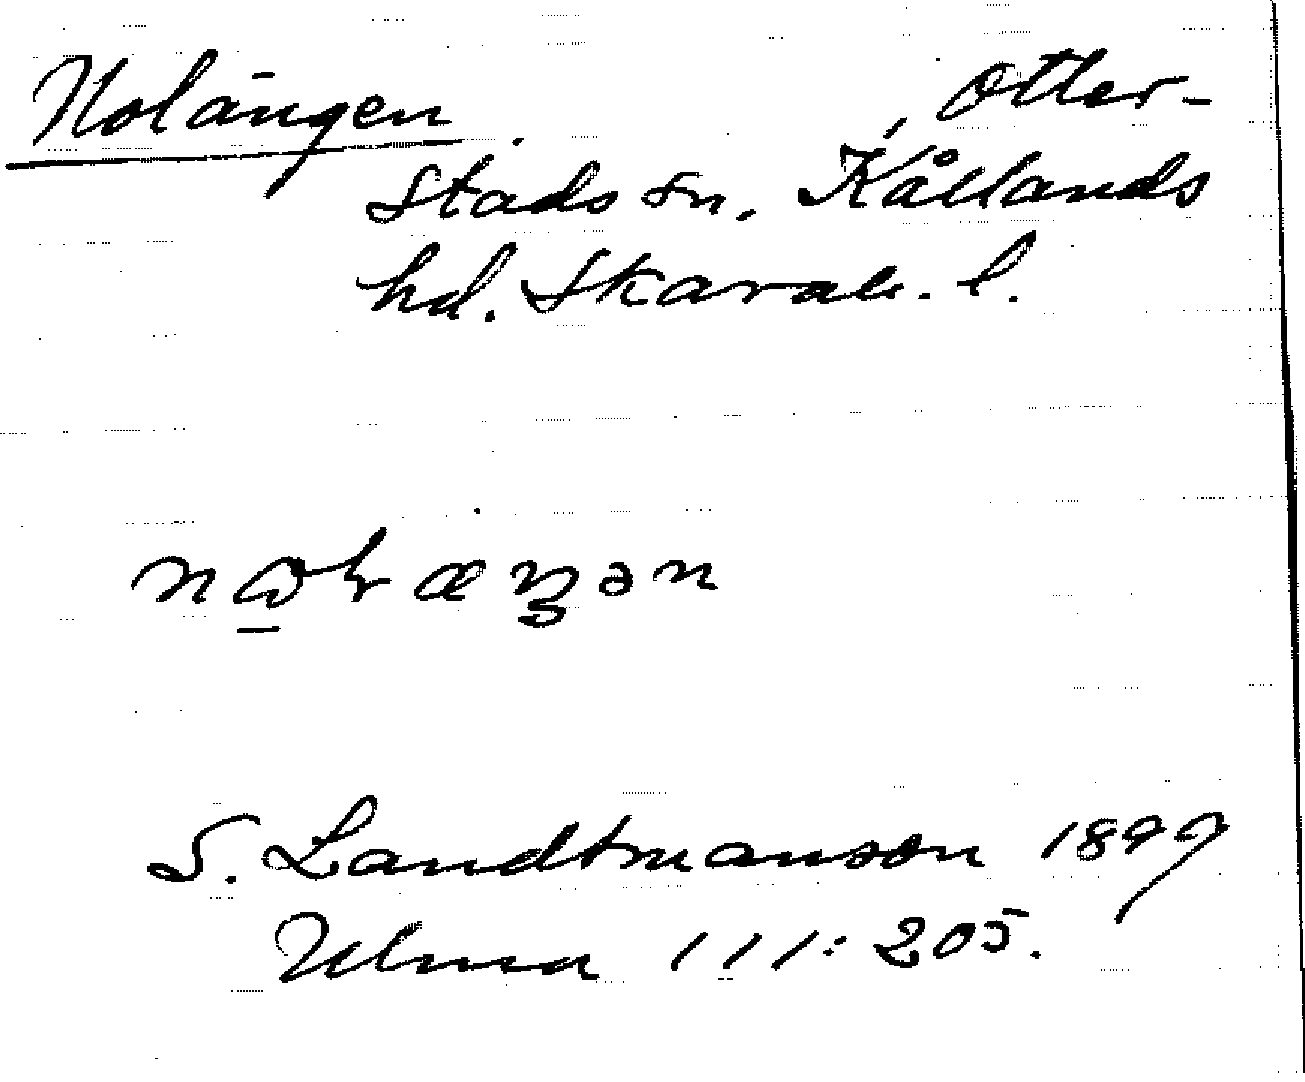 Nolängen, Otter-
stads sn, Kållands
hd. Skarab. l.
S. Landtmanson 1899
Ulma 111:205.